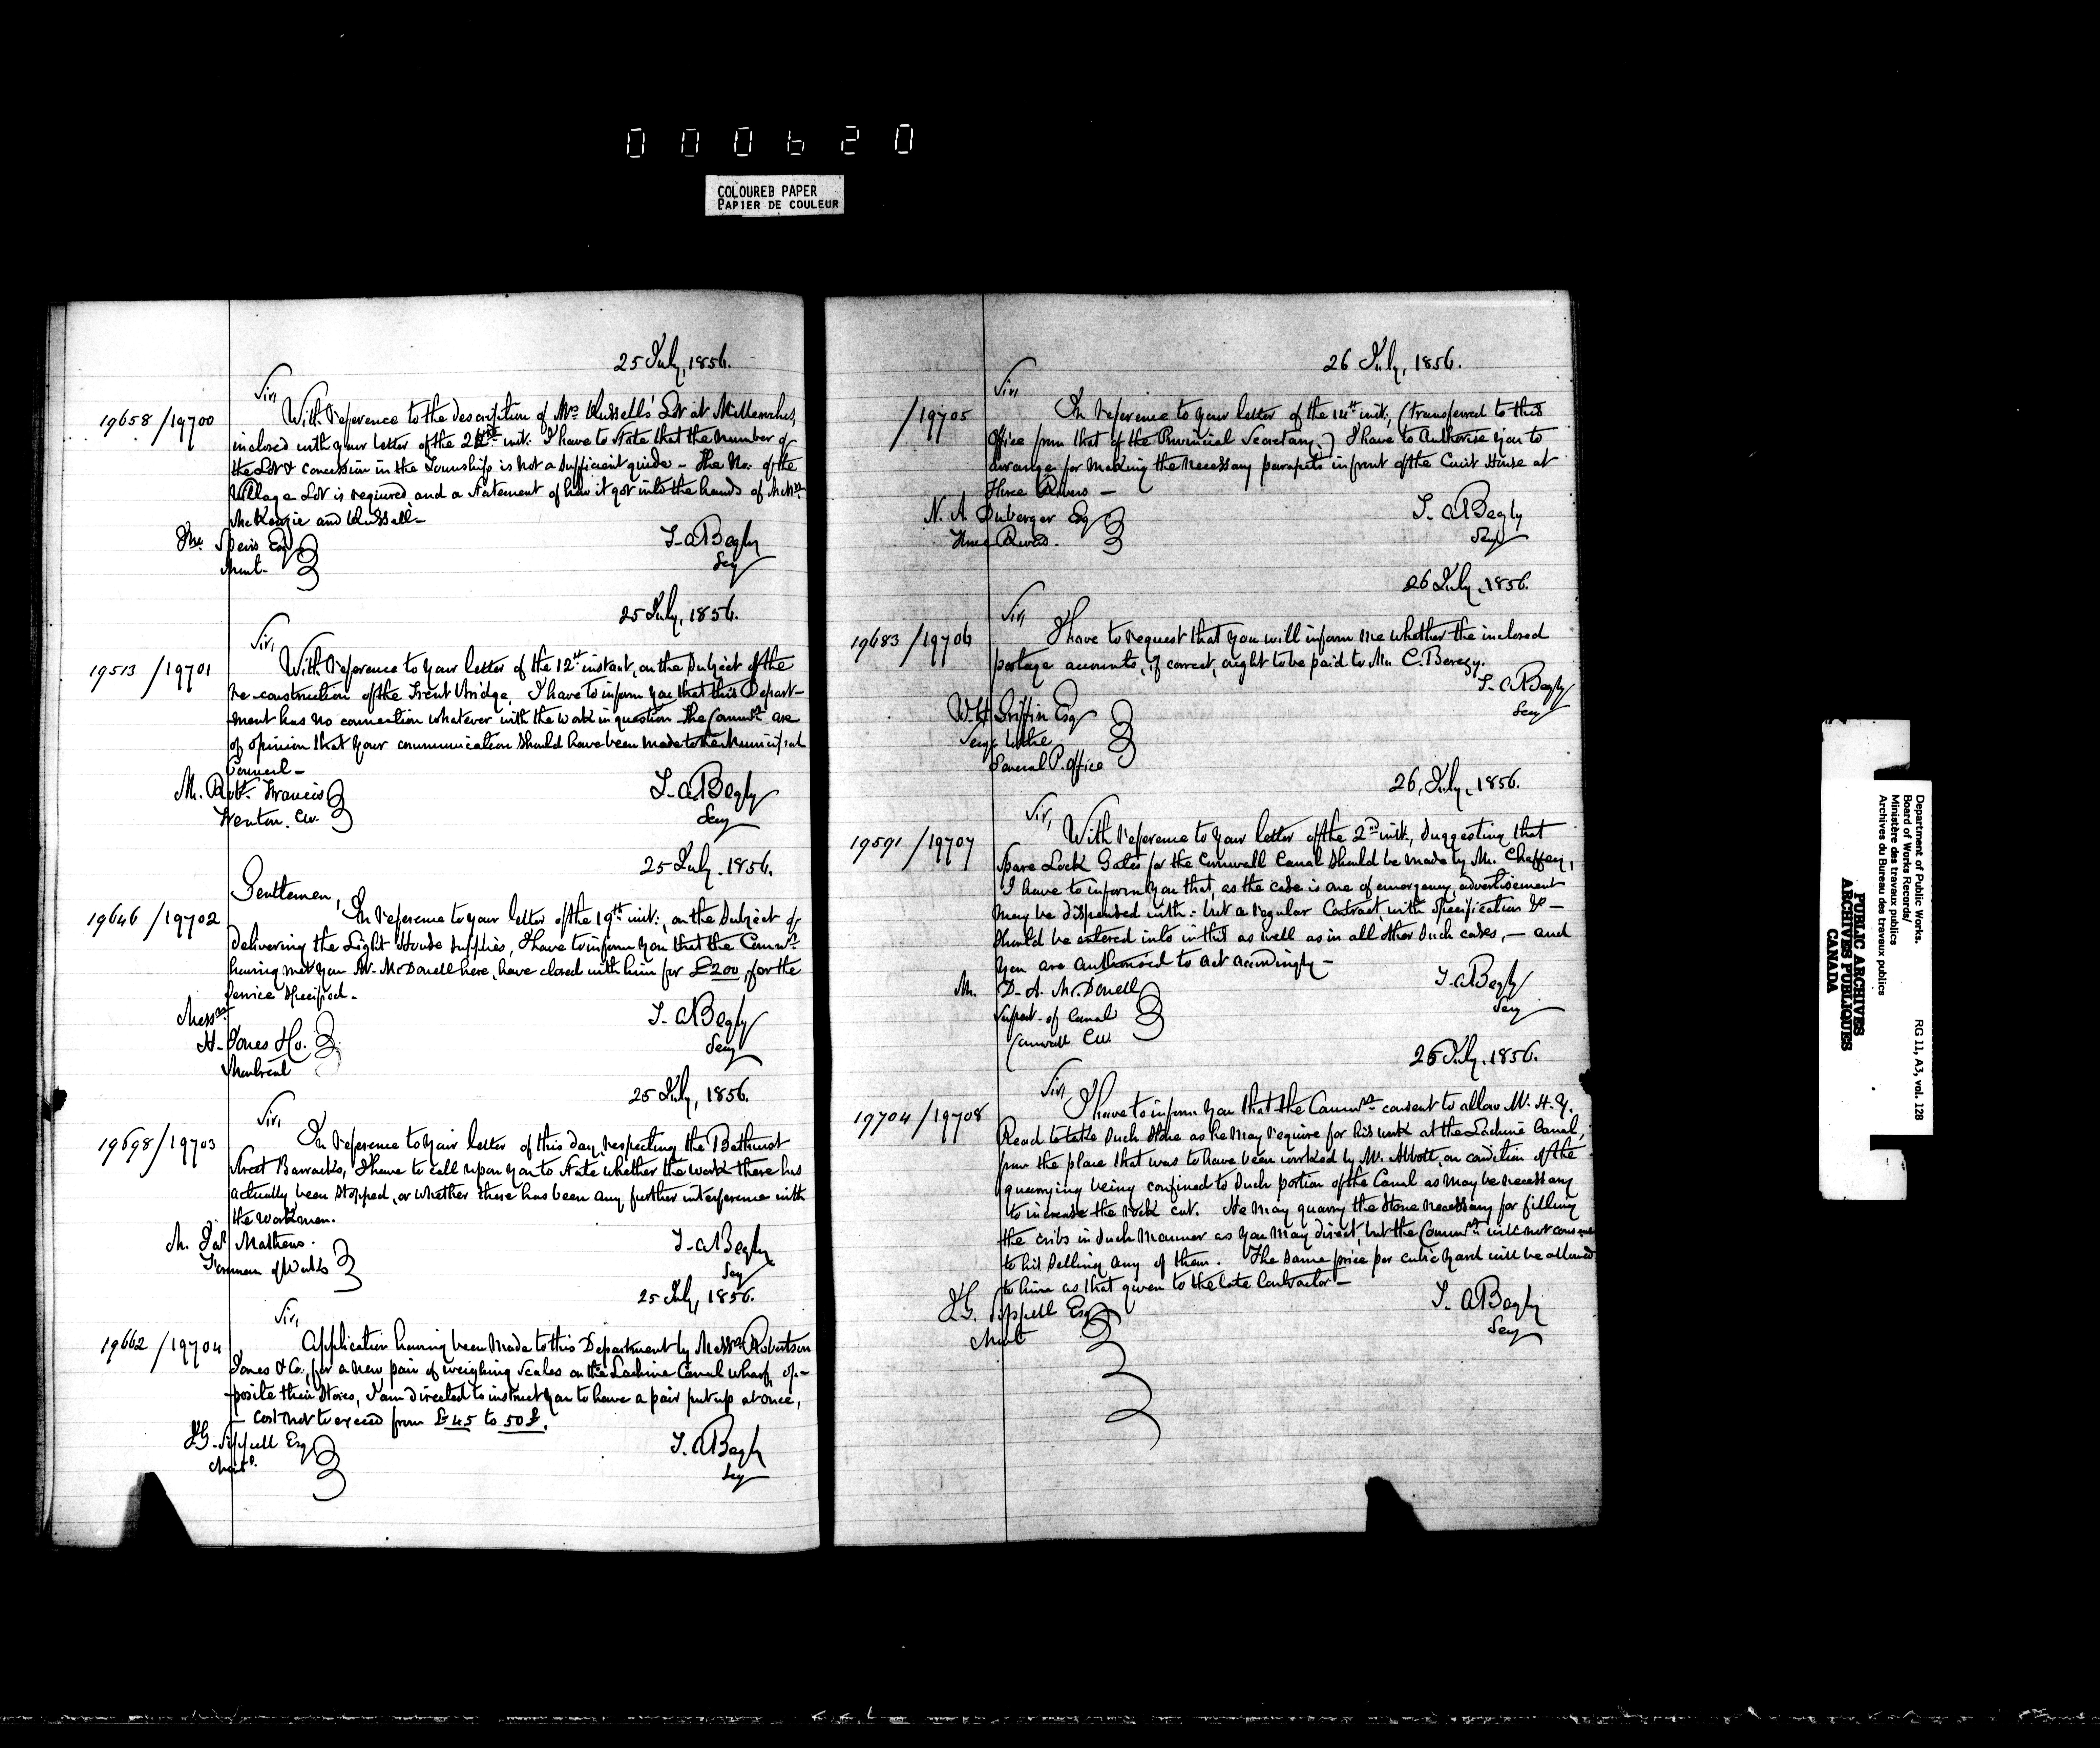 000620
COLOURED PAPER
PAPIER DE COULEUR
25 July, 1856.
Sir,
19658/19700
With reference to the description of Mrs Russells' Lot at
inclosed with your letter of the inst: I have to State that the number of
the Lot & Concession in the Township is not a sufficient guide - The No. of the
Village Lot is required, and a Statement of how it got into the hands of Messrs
McKenzie and Russell-
Speirs Esq
T. A Begly
Secy
25 July, 1856.
Sir,
19513/19701
With reference to your letter of the 12th instant, on the subject of the
re-construction of the Trent Bridge, I have to inform you that this Depart-
ment has no connection whatever with the work in question. The Commrs are
of opinion that your communication should have been made to the Municipal
Council-
M. Robt. Francis
Trenton. CW.
T. A. Begly
Secy
25 July. 1856.
Gentlemen,
19646/19702
In reference to your letter of the 19th inst:, on the subject of
delivering the Light House supplies, I have to inform you that the Commrs
having met Mr. McDonell here, have closed with him for £200, for the
Service specified-
Messrs
H. Jones & Co.
Montreal
T. A Begly
Secy
25 July, 1856.
Sir,
19698/19703
In reference to your letter of this day, respecting the Bathurst
Street Barracks, I have to call upon you to State whether the work there has
actually been stopped, or whether there has been any further interference with
the workmen.
M. Jas Mathews.
Foreman of Works
T. A Begly
Secy
25 July, 1856.
Sir,
19662/19704
Application having been made to this Department by Messrs Robertson
Jones & Co., for a new pair of weighing scales on the Lachine Canal wharf, op-
posite their Stores, I am directed to instruct you to have a pair put up at once,
- Cost not to exceed from £45 to 50£.
J G. Sippell Esq
Montl.
T. A Begly
Secy
26 July, 1856.
Sir,
/19705
In reference to your letter of the 14th inst:, (transferred to this
Office from that of the Provincial Secretary,) I have to Authorise you to
arrange for making the necessary parapets in front of the Court House at
Three Rivers -
N. A. Duberger Esq
Three Rivers.
T. A Begly
Secy
26 July, 1856.
Sir,
19683/19706
I have to request that you will inform me whether the inclosed
postage accounts, if correct, ought to be paid to Mr. C. Berczy.
T. A Begly
Secy
W H Griffin Esq
Secy to the
General P. Office
26, July, 1856.
Sir,
19591/19707
With reference to your letter of the 2nd inst:, suggesting that
Spare Lock Gates for the Cornwall Canal should be made by Mr. Chaffey,
I have to inform you that, as the case is one of emergency, advertisement
may be dispensed with:- but a regular Contract, with Specification &c -
should be entered into in this as well as in all other such cases, - and
you are authorised to act accordingly -
M. D. A. McDonell
Supert. of Canal
Cornwall CW.
T. A Begly
Secy
26 July, 1856.
Sir,
19704/19708
I have to inform you that the Commrs consent to allow Mr. H. Y.
Read to take such stone as he may require for his work at the Lachine Canal,
from the place that was to have been worked by Mr. Abbott, on condition of the
quarrying being confined to such portion of the Canal as may be necessary
to increase the rock cut. He may quarry the stone necessary for filling
the cribs in such manner as you may direct, but the Commrs will not consent
to his selling any of them. The same price per cubic yard will be allowed
to him as that given to the late Contractor -
J G. Sippell Esq
Mont
T. A Begly
Secy
Department of Public Works. RG 11, A3, vol. 128
Board of Works Records/
Ministère des travaux publics
Archives du Bureau des travaux publics
PUBLIC ARCHIVES
ARCHIVES PUBLIQUES
CANADA